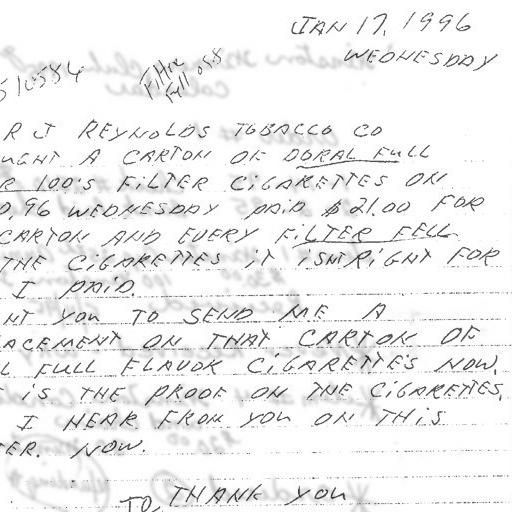 JAN 17, 1996
WEDNESDAY
510584
Filter
Fell off
R J REYNOLDS TOBACCO CO
UGHT A CARTON OF DORAL FULL
R 100'S FILTER CIGARETTES ON
0,96 WEDNESDAY PAID $21.00 FOR
CARTON AND EVERY FILTER FELL
THE CIGARETTES IT ISNT RIGHT FOR
I PAID.
NT YOU TO SEND ME A
ACEMENT ON THAT CARTON OF
L FULL FLAVOR CIGARETTES NOW.
IS THE PROOF ON THE CIGARETTES.
I HEAR FROM YOU ON THIS
TER. NOW.
TO, THANK YOU